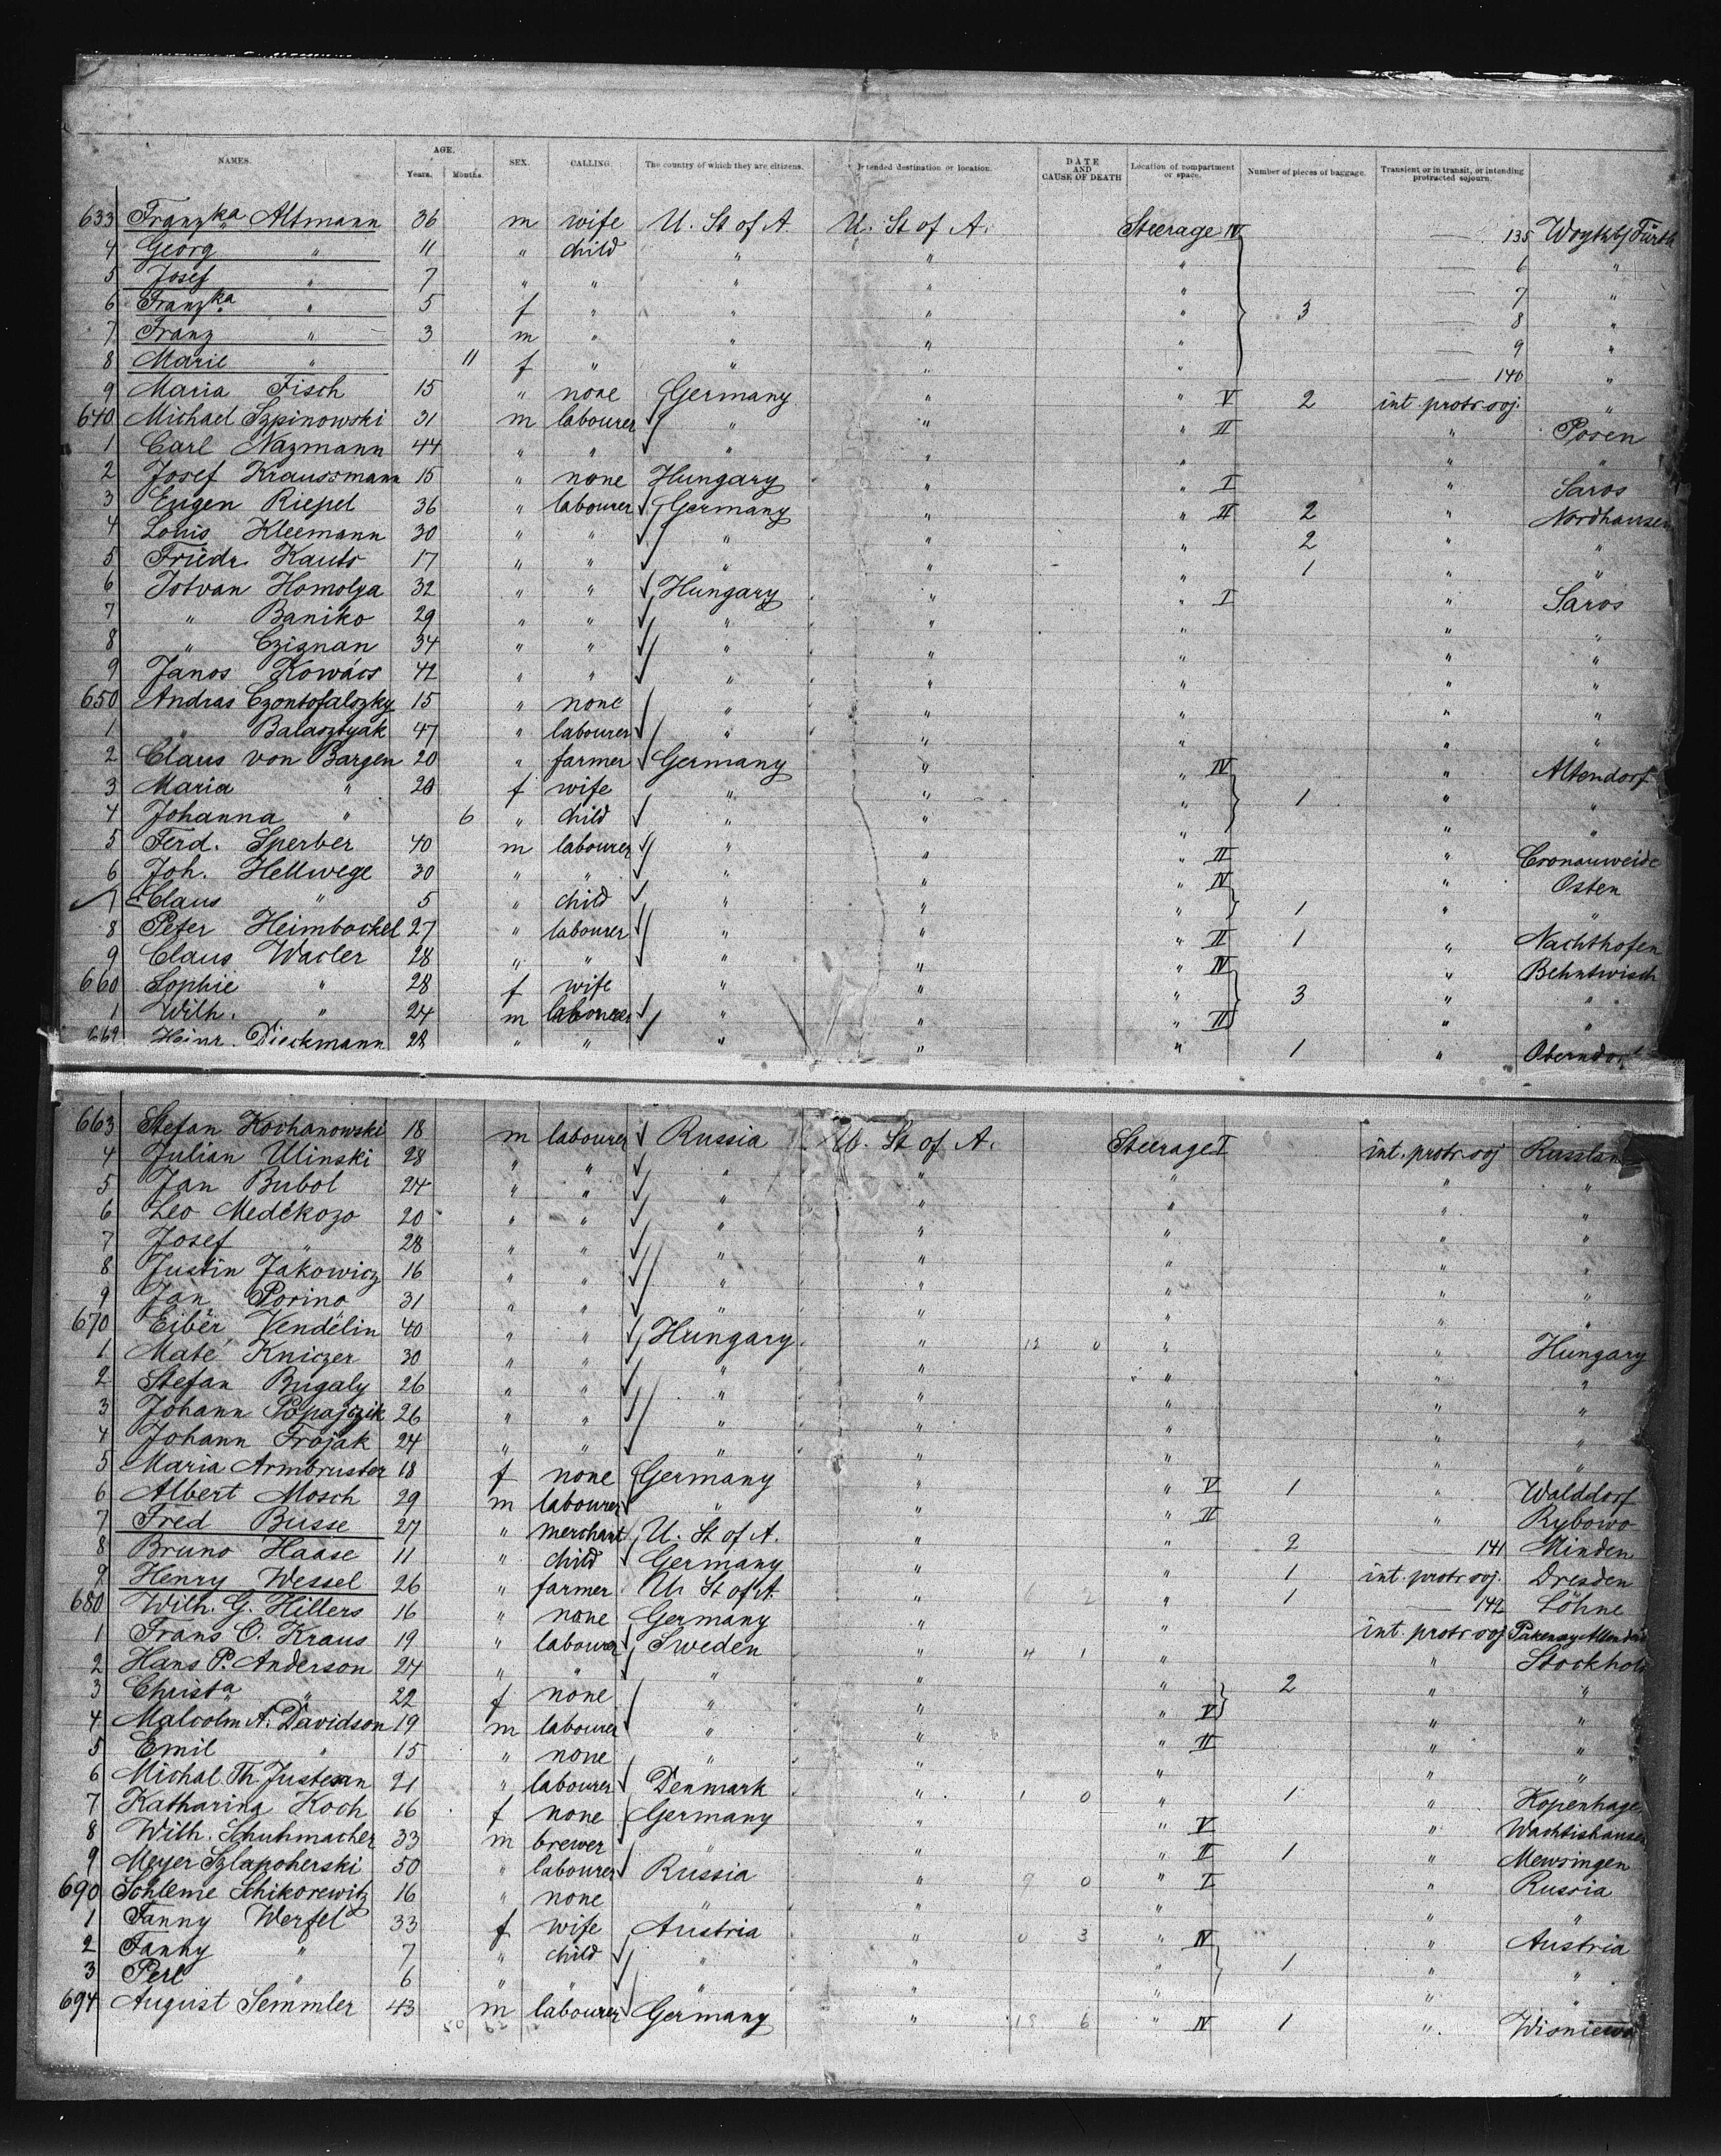 NAMES. AGE. Years. Months. SEX. CALLING. The country of which they are citizens. Intended destination or location. DATE AND CAUSE OF DEATH Location of compartment or space. Number of pieces of baggage. Transient or in transit, or intending protracted sojourn.
633 Franzka Altmann 36 m wife U. St of A. U. St of A. Steerage IV 135
4 Georg " 11 " child " " " 6 "
5 Josef " 7 " " " " " 7 "
6 Franzka " 5 f " " " " 3 8 "
7 Franz " 3 m " " " " 9 "
8 Marie " 11 f " " " " 140 "
9 Maria Fisch 15 " none Germany " " V 2 int protr soj. "
640 Michael Szpinowski 31 m labourer " " " II " Posen
1 Carl Nazmann 44 " " " " " " "
2 Josef Kraussmann 15 " none Hungary " " I " Saros
3 Eugen Riepel 36 " labourer Germany " " II 2 " Nordhausen
4 Louis Kleemann 30 " " " " " 2 " "
5 Friedr. Kauts 17 " " " " " 1 " "
6 Istvan Homolya 32 " " Hungary " " I " Saros
7 " Baniko 29 " " " " " " "
8 " Czignan 34 " " " " " " "
9 Janos Kowács 42 " " " " " " "
650 Andras Czontofalszky 15 " none " " " " "
1 " Balasztyak 47 " labourer " " " " "
2 Claus von Bargen 20 " farmer Germany " " IV " Altendorf
3 Maria " 20 f wife " " " 1 " "
4 Johanna " 6 " child " " " " "
5 Ferd. Sperber 40 m labourer " " " II " Cronauweide
6 Joh. Hellwege 30 " " " " " IV " Osten
7 Claus " 5 " child " " " 1 " "
8 Peter Heimbockel 27 " labourer " " " II 1 " Nachthofen
9 Claus Wacler 28 " " " " " IV " Behntwisch
660 Sophie " 28 f wife " " " 3 " "
1 Wilh. " 24 m labourer " " " II " "
662 Heinr. Dieckmann 28 " " " " " 1 " Oberndorf
663 Stefan Kochanowski 18 m labourer Russia U. St of A. Steerage I int. protr. soj Russland
4 Julian Ulinski 28 " " " " " " "
5 Jan Bubol 24 " " " " " " "
6 Leo Medékozo 20 " " " " " " "
7 Josef " 28 " " " " " " "
8 Justin Jakowicz 16 " " " " " " "
9 Jan Porino 31 " " " " " " "
670 Eiber Vendélin 40 " " Hungary " 12 0 " " Hungary
1 Maté Kniczer 30 " " " " " " "
2 Stefan Bugaly 26 " " " " " " "
3 Johann Popajczik 26 " " " " " " "
4 Johann Trojak 24 " " " " " " "
5 Maria Armbruster 18 f none Germany " " V 1 " Walddorf
6 Albert Mosch 29 m labourer " " " II " Rybowo
7 Fred Busse 27 " merchant U. St of A. " " 2 141 Minden
8 Bruno Haase 11 " child Germany " " 1 int. protr. soj. Dresden
9 Henry Wessel 26 " farmer U. St of A. " " 1 142 Löhne
680 Wilh. G. Hillers 16 " none Germany " " int. protr soj
1 Frans O. Kraus 19 " labourer Sweden " 4 1 " " Stockholm
2 Hans P. Anderson 24 " " " " " 2 " "
3 Christa " 22 f none " " " V " "
4 Malcolm A. Davidson 19 m labourer " " " II " "
5 Emil " 15 " none " " " " "
6 Michal Th. Justesen 21 " labourer Denmark " 1 0 " 1 " Kopenhagen
7 Katharina Koch 16 f none Germany " " V " Wachtishausen
8 Wilh. Schuhmacher 33 m brewer " " " II 1 " Mewsingen
9 Meyer Szlapoherski 50 " labourer Russia " 9 0 " I " Russia
690 Schleme Schikorewitz 16 " none " " " " "
1 Fanny Werfel 33 f wife Austria " 0 3 " IV " Austria
2 Fanny " 7 " child " " " 1 " "
3 Perl " 6 " " " " " " "
694 August Semmler 43 m labourer Germany " 18 6 " IV 1 " Wisniewo